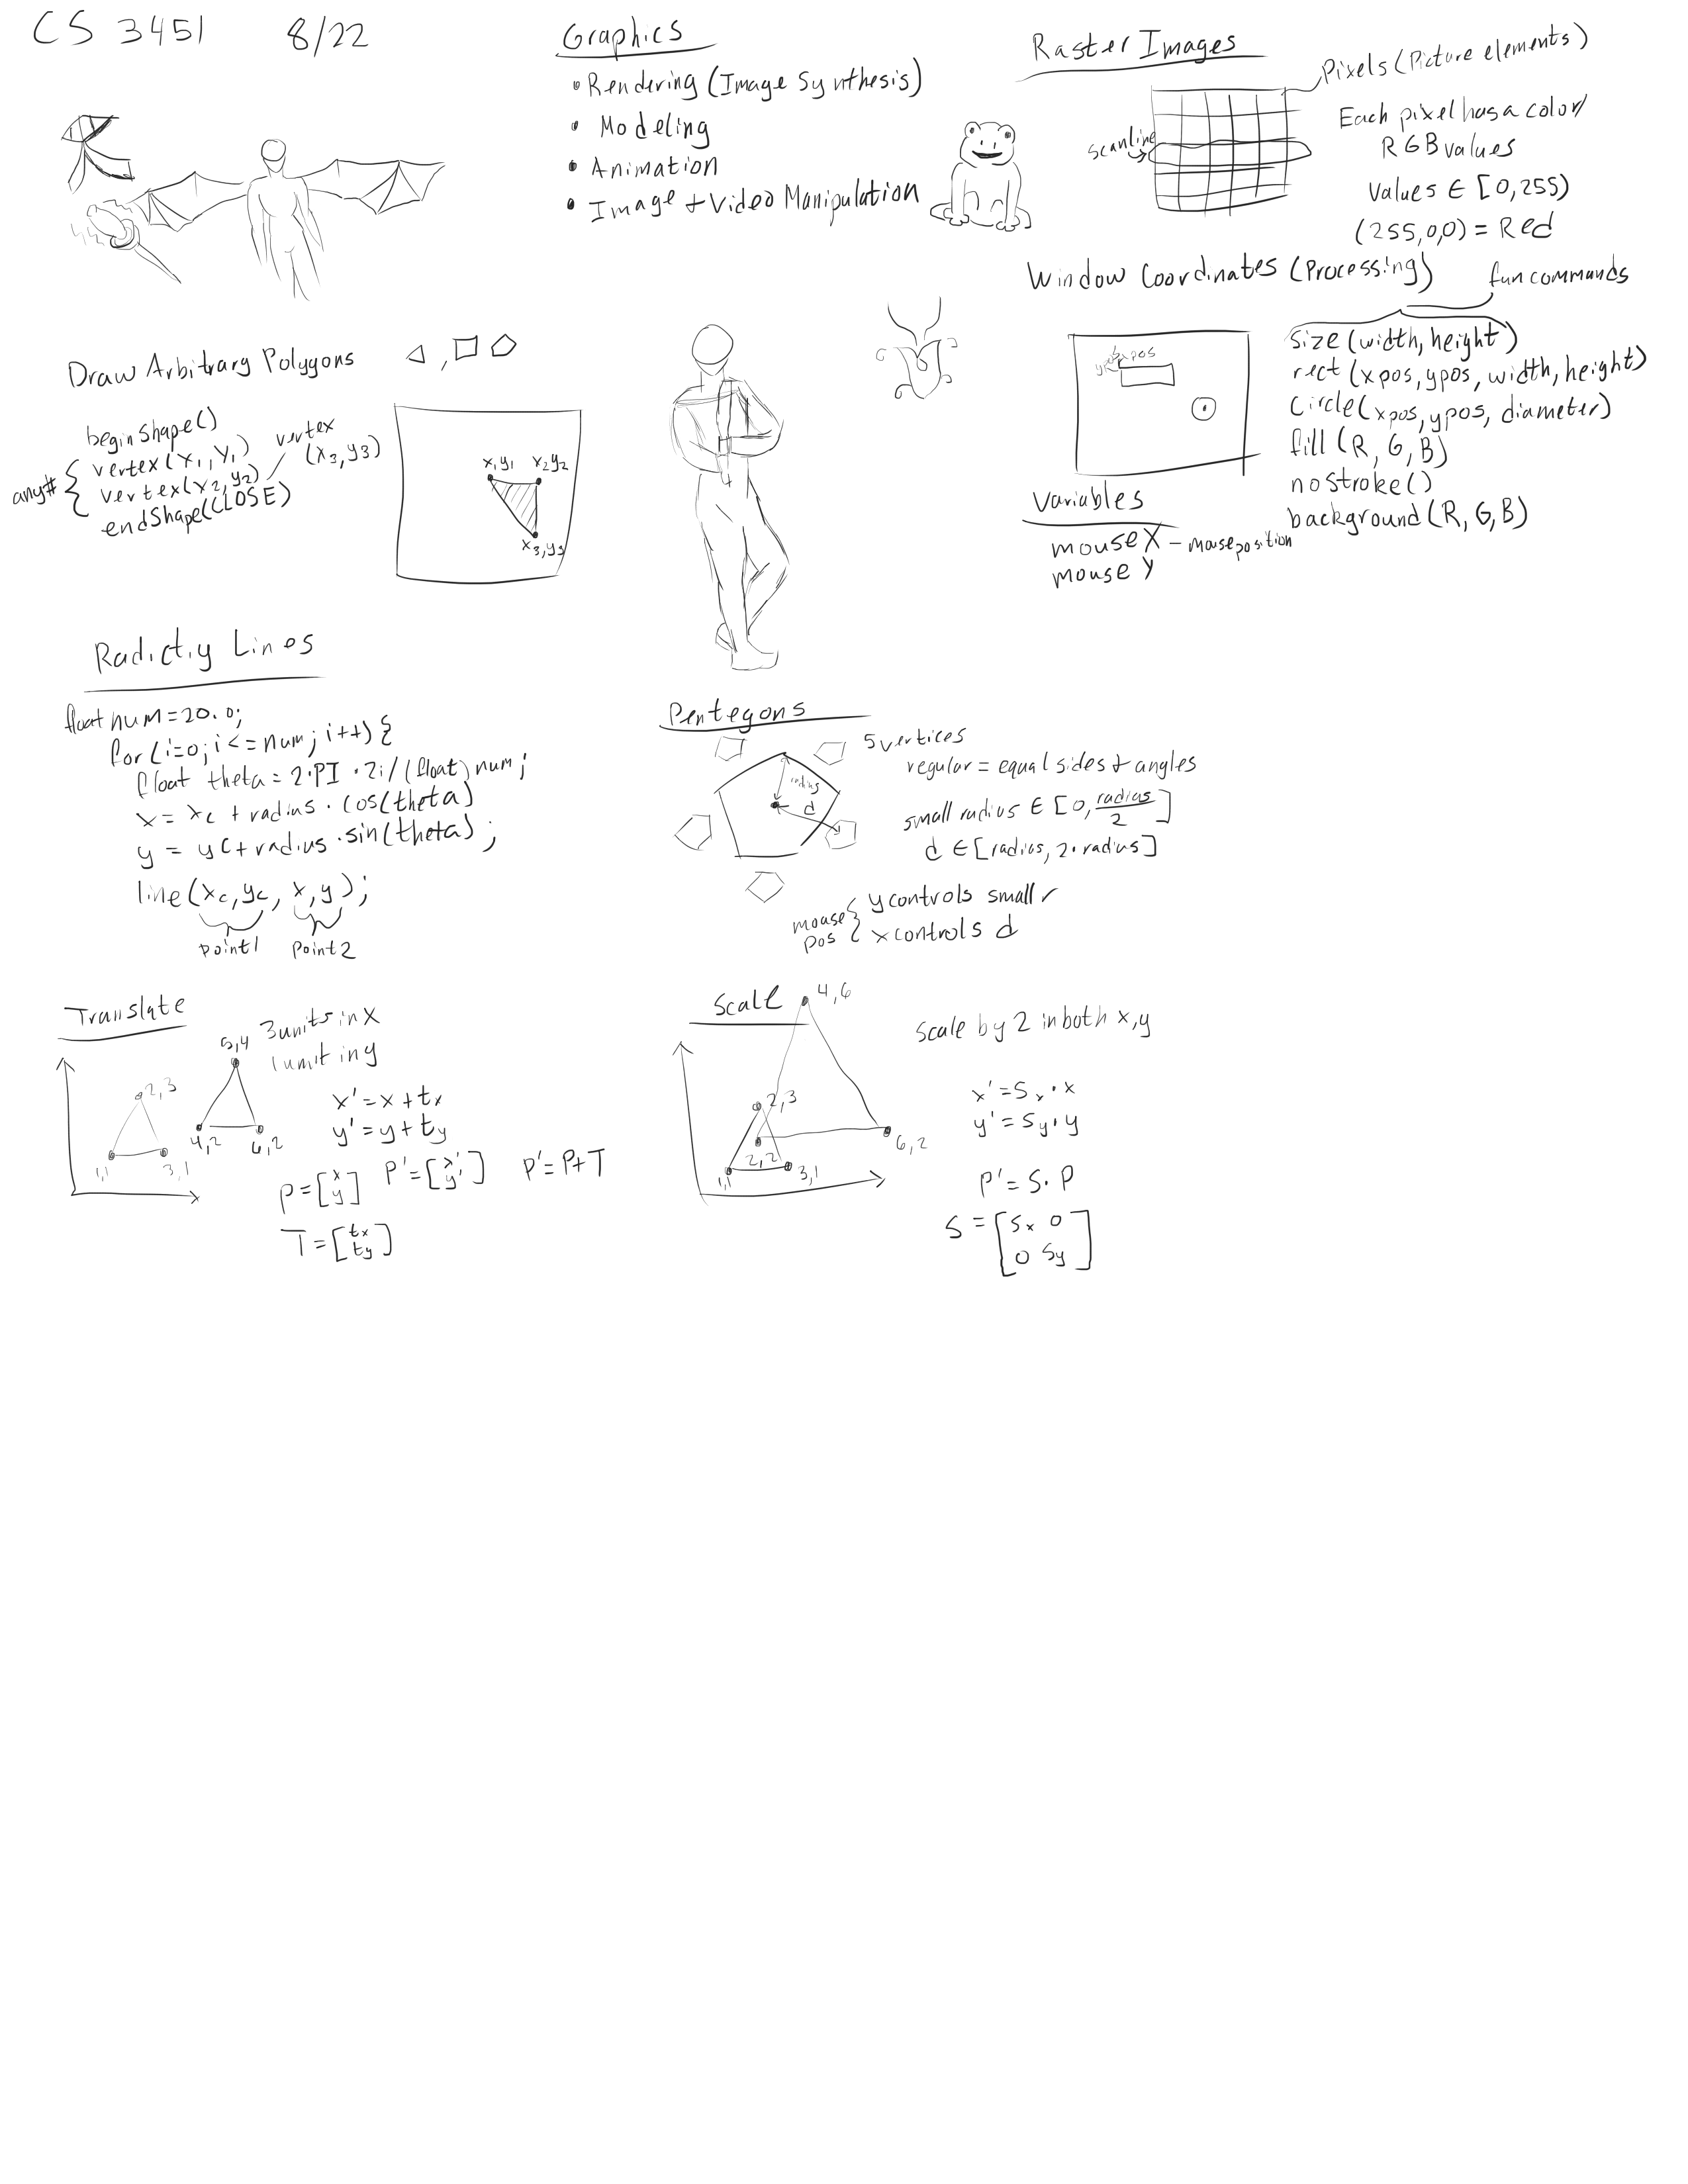 CS 3451 8/22
Graphics
• Rendering (Image Synthesis)
• Modeling
• Animation
• Image + Video Manipulation
Raster Images
Pixels (Picture elements)
scanline
Each pixel has a color/
RGB values
Values ∈ [0,255)
(255,0,0) = Red
Window Coordinates (Processing)
fun commands
size (width, height)
rect (xpos, ypos, width, height)
Circle (xpos, ypos, diameter)
fill (R, G, B)
noStroke()
background (R, G, B)
Variables
mouse X – mouse position
mouse Y
Draw Arbitrary Polygons
beginShape()
any# { vertex (x₁, y₁)
vertex (x₂, y₂) / vertex (x₃, y₃)
endShape(CLOSE)
x₁y₁ x₂y₂
x₃,y₃
Radictiy Lines
float num = 20.0;
for (i=0; i<=num; i++) {
float theta = 2·PI · 2i/(float) num;
x = xc + radius · cos(theta)
y = yc + radius · sin(theta);
line (xc, yc, x, y);
point1 point2
Pentegons
5 vertices
regular = equal sides + angles
radius
d
small radius ∈ [0, radius/2]
d ∈ [radius, 2·radius]
mouse pos { y controls small r
x controls d
Translate
3 units in X
1 unit in y
5,4
2,3
1,1 3,1 4,2 6,2
x' = x + tx
y' = y + ty
P = [x y] P' = [x' y'] P' = P + T
T = [tx ty]
Scale
4,6
scale by 2 in both x,y
2,3
2,2
1,1 3,1
6,2
x' = Sx · x
y' = Sy · y
P' = S · P
S = [Sx 0
0 Sy]